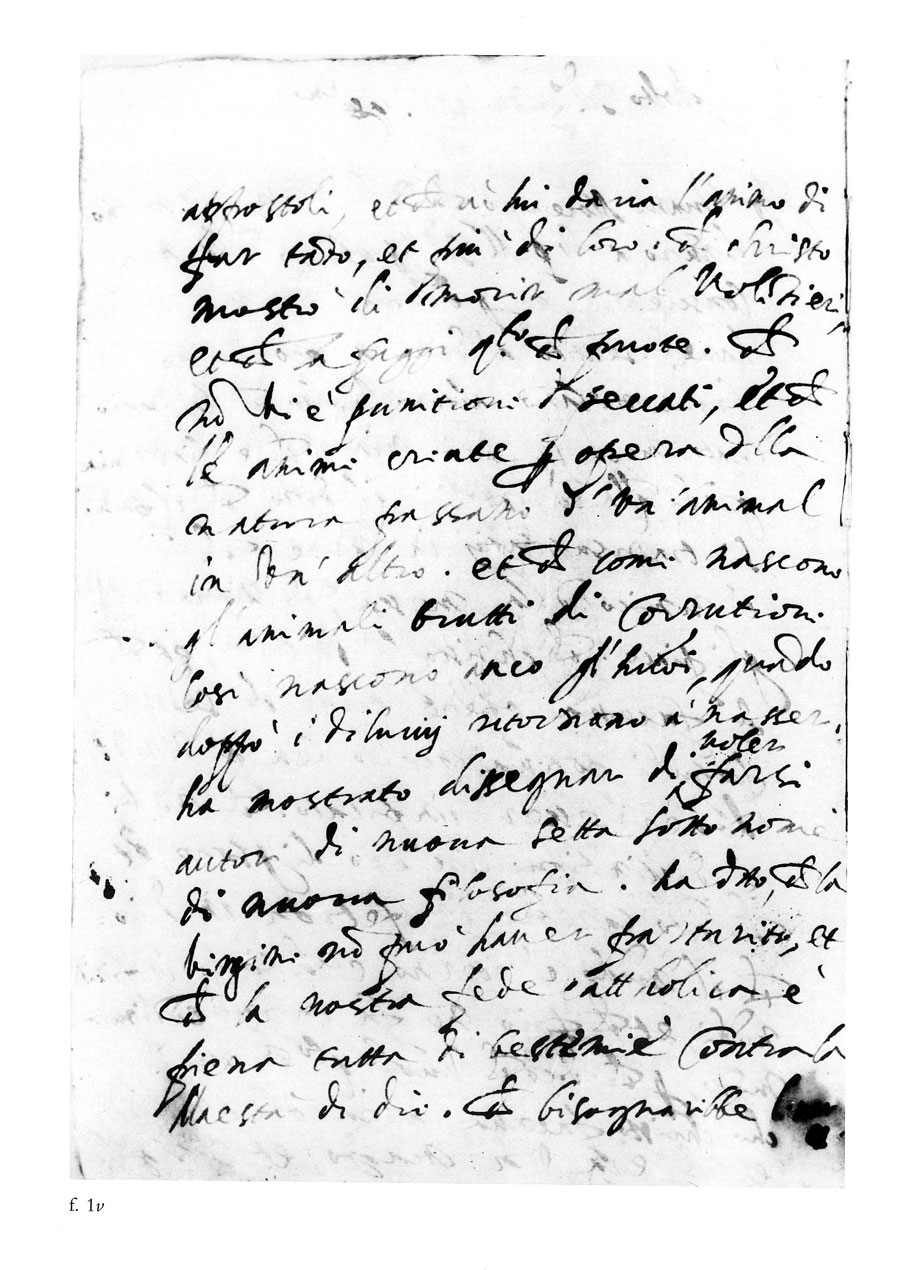 apostoli, et ch'a lui daria l'animo di
far tāto, et più di loro. ch̄ christo
mostrò di morir mal volētieri,
et ch̄ la fuggì qto ch̄ puote. ch̄
nō vi è punitione d' peccati, et ch̄
le anime create p opera dlla
natura passano d' un' animal
in un' altro. et ch̄ come nascono
gl'animali brutti di corrutione
così nascono anco gl'huōi, quādo
doppò i diluuij ritornano à nasser.
ha mostrato dissegnar di voler farsi
autor di nuoua setta sotto nome
di nuoua filosofia. ha dtto, ch̄ la
virgine nō può hauer parturito, et
ch̄ la nostra fede catholica è
piena tutta di bestēmie cōtra la
Maestà di dio. ch̄ bisognarebbe
f. 1v